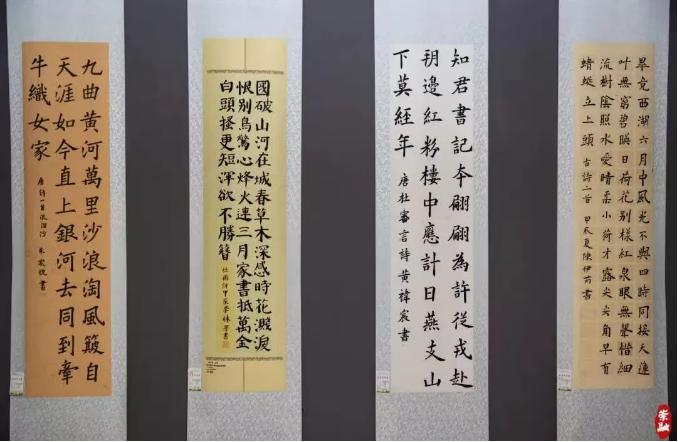 畢竟西湖六月中風光不與四時同接天蓮
叶無窮碧暎日荷花別樣紅泉眼無聲惜細
流樹陰照水愛晴柔小荷才露尖尖角早有
蜻蜓立上頭 古詩二首 甲辰夏陳伊芮書
知君書記本翩翩為許從戎赴
朔邊紅粉樓中應計日燕支山
下莫經年 唐杜審言詩黃禕宸書
國破山河在城春草木深感時花濺淚
恨別鳥驚心烽火連三月家書抵萬金
白頭搔更短渾欲不勝簪 杜甫詩甲辰季林書
九曲黃河萬里沙浪淘風簸自
天涯如今直上銀河去同到牽
牛織女家 唐詩一首浪淘沙 朱書